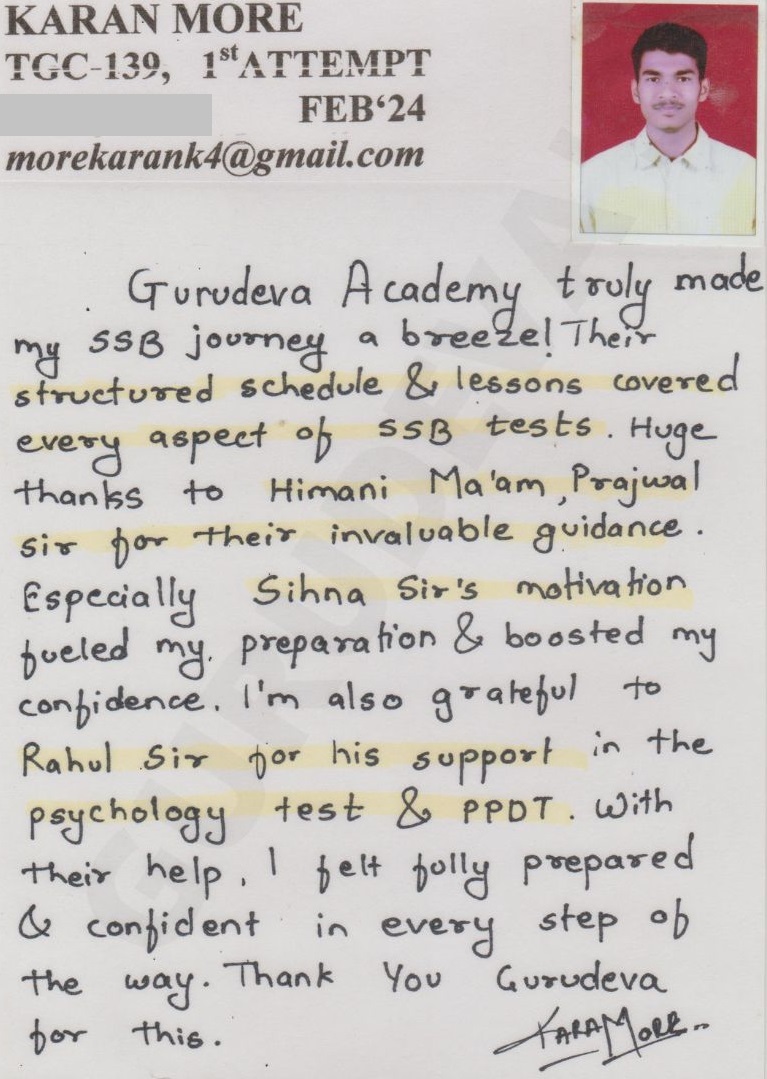 KARAN MORE
TGC-139, 1st ATTEMPT
FEB‘24
morekarank4@gmail.com
Gurudeva Academy truly made
my SSB journey a breeze! Their
structured schedule & lessons covered
every aspect of SSB tests. Huge
thanks to Himani Ma'am, Prajwal
sir for their invaluable guidance.
Especially Sihna Sir's motivation
fueled my. preparation & boosted my
confidence. I'm also grateful to
Rahul Sir for his support in the
psychology test & PPDT. With
their help, I felt fully prepared
& confident in every step of
the way. Thank You Gurudeva
for this.
KARAN MORE